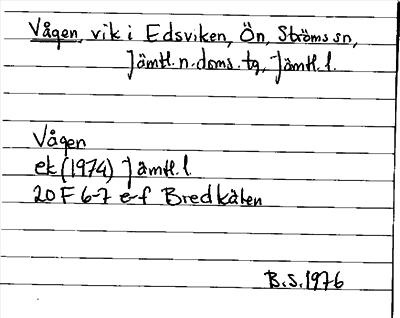 Vågen, vik i Edsviken, Ön, Ströms sn,
Jämtl. n. doms. tg, Jämtl. l.
Vågen
ek (1974) Jämtl. l.
20 F 6-7 e-f Bredkälen
B.S. 1976